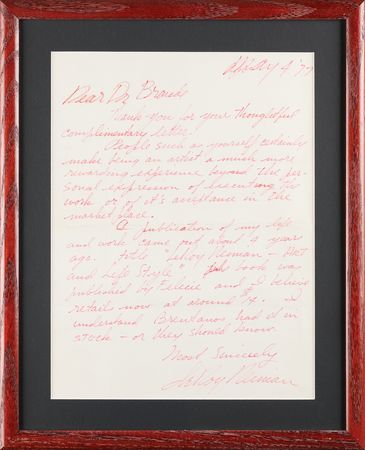 4 '77
Dear Dr. Brande
Thank you for your thoughtful
complimentary letter.
People such as yourself certainly
make being an artist a much more
rewarding experience beyond the per-
sonal expression of executing the
work or of it's acceptance in the
market place.
A publication of my life
and work came out about a year
ago. title "LeRoy Neiman - Art
and Life Style". book was
published by Felicie and I believe
retails now at around I
understand Brentanos had it in
stock - or they should know.
Most Sincerely
LeRoy Neiman